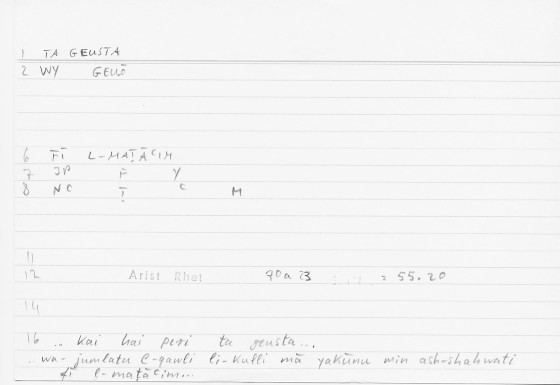 1 TA GEUSTA
2 WY GEUŌ
6 FĪ L-MAṬĀʿIM
7 JP F Y
8 NC Ṭ ʿ M
11
12 Arist Rhet 90a23 = 55.20
14
16 .. kai hai peri ta geusta...
.. wa-jumlatu l-qawli li-kulli mā yakūnu min ash-shahwati
fī l-maṭāʿim...